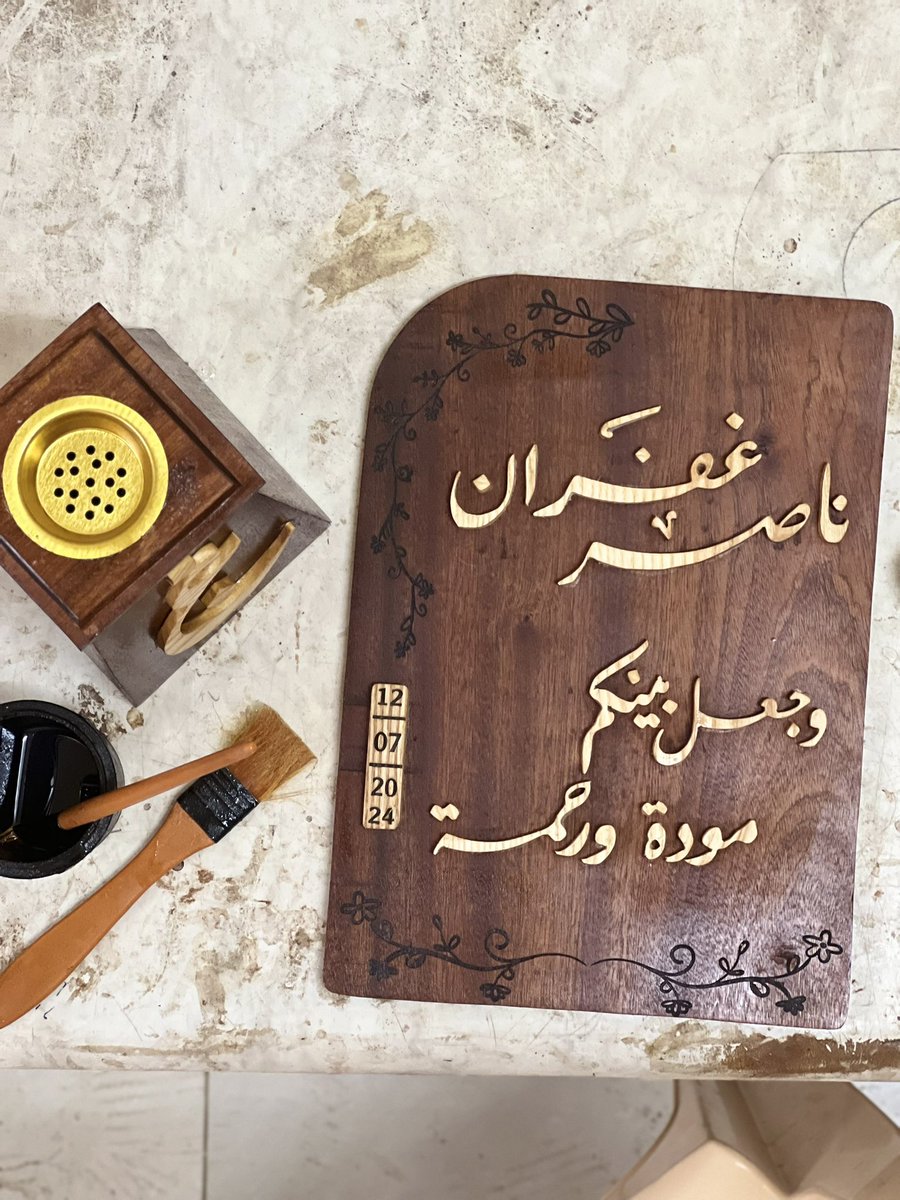 ناصر غفران
وجعل بينكم
مودة ورحمة
12
07
20
24